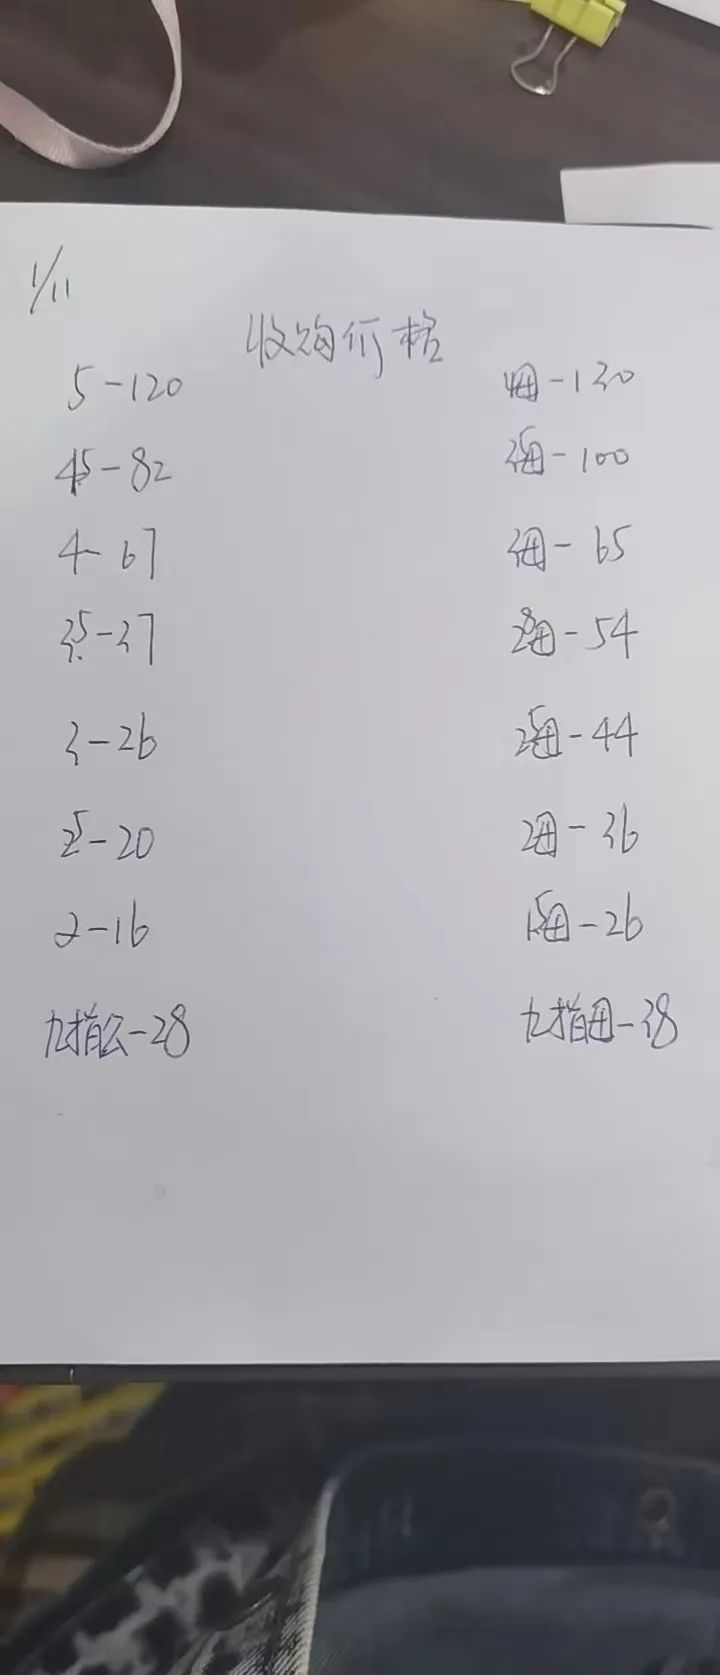 1/11
收购价格
5-120
4母-130
4.5-82
3.5母-100
4-67
3母-65
3.5-37
2.8母-54
3-26
2.5母-44
2.5-20
2母-36
2-16
1.5母-26
九指公-28
九指母-38